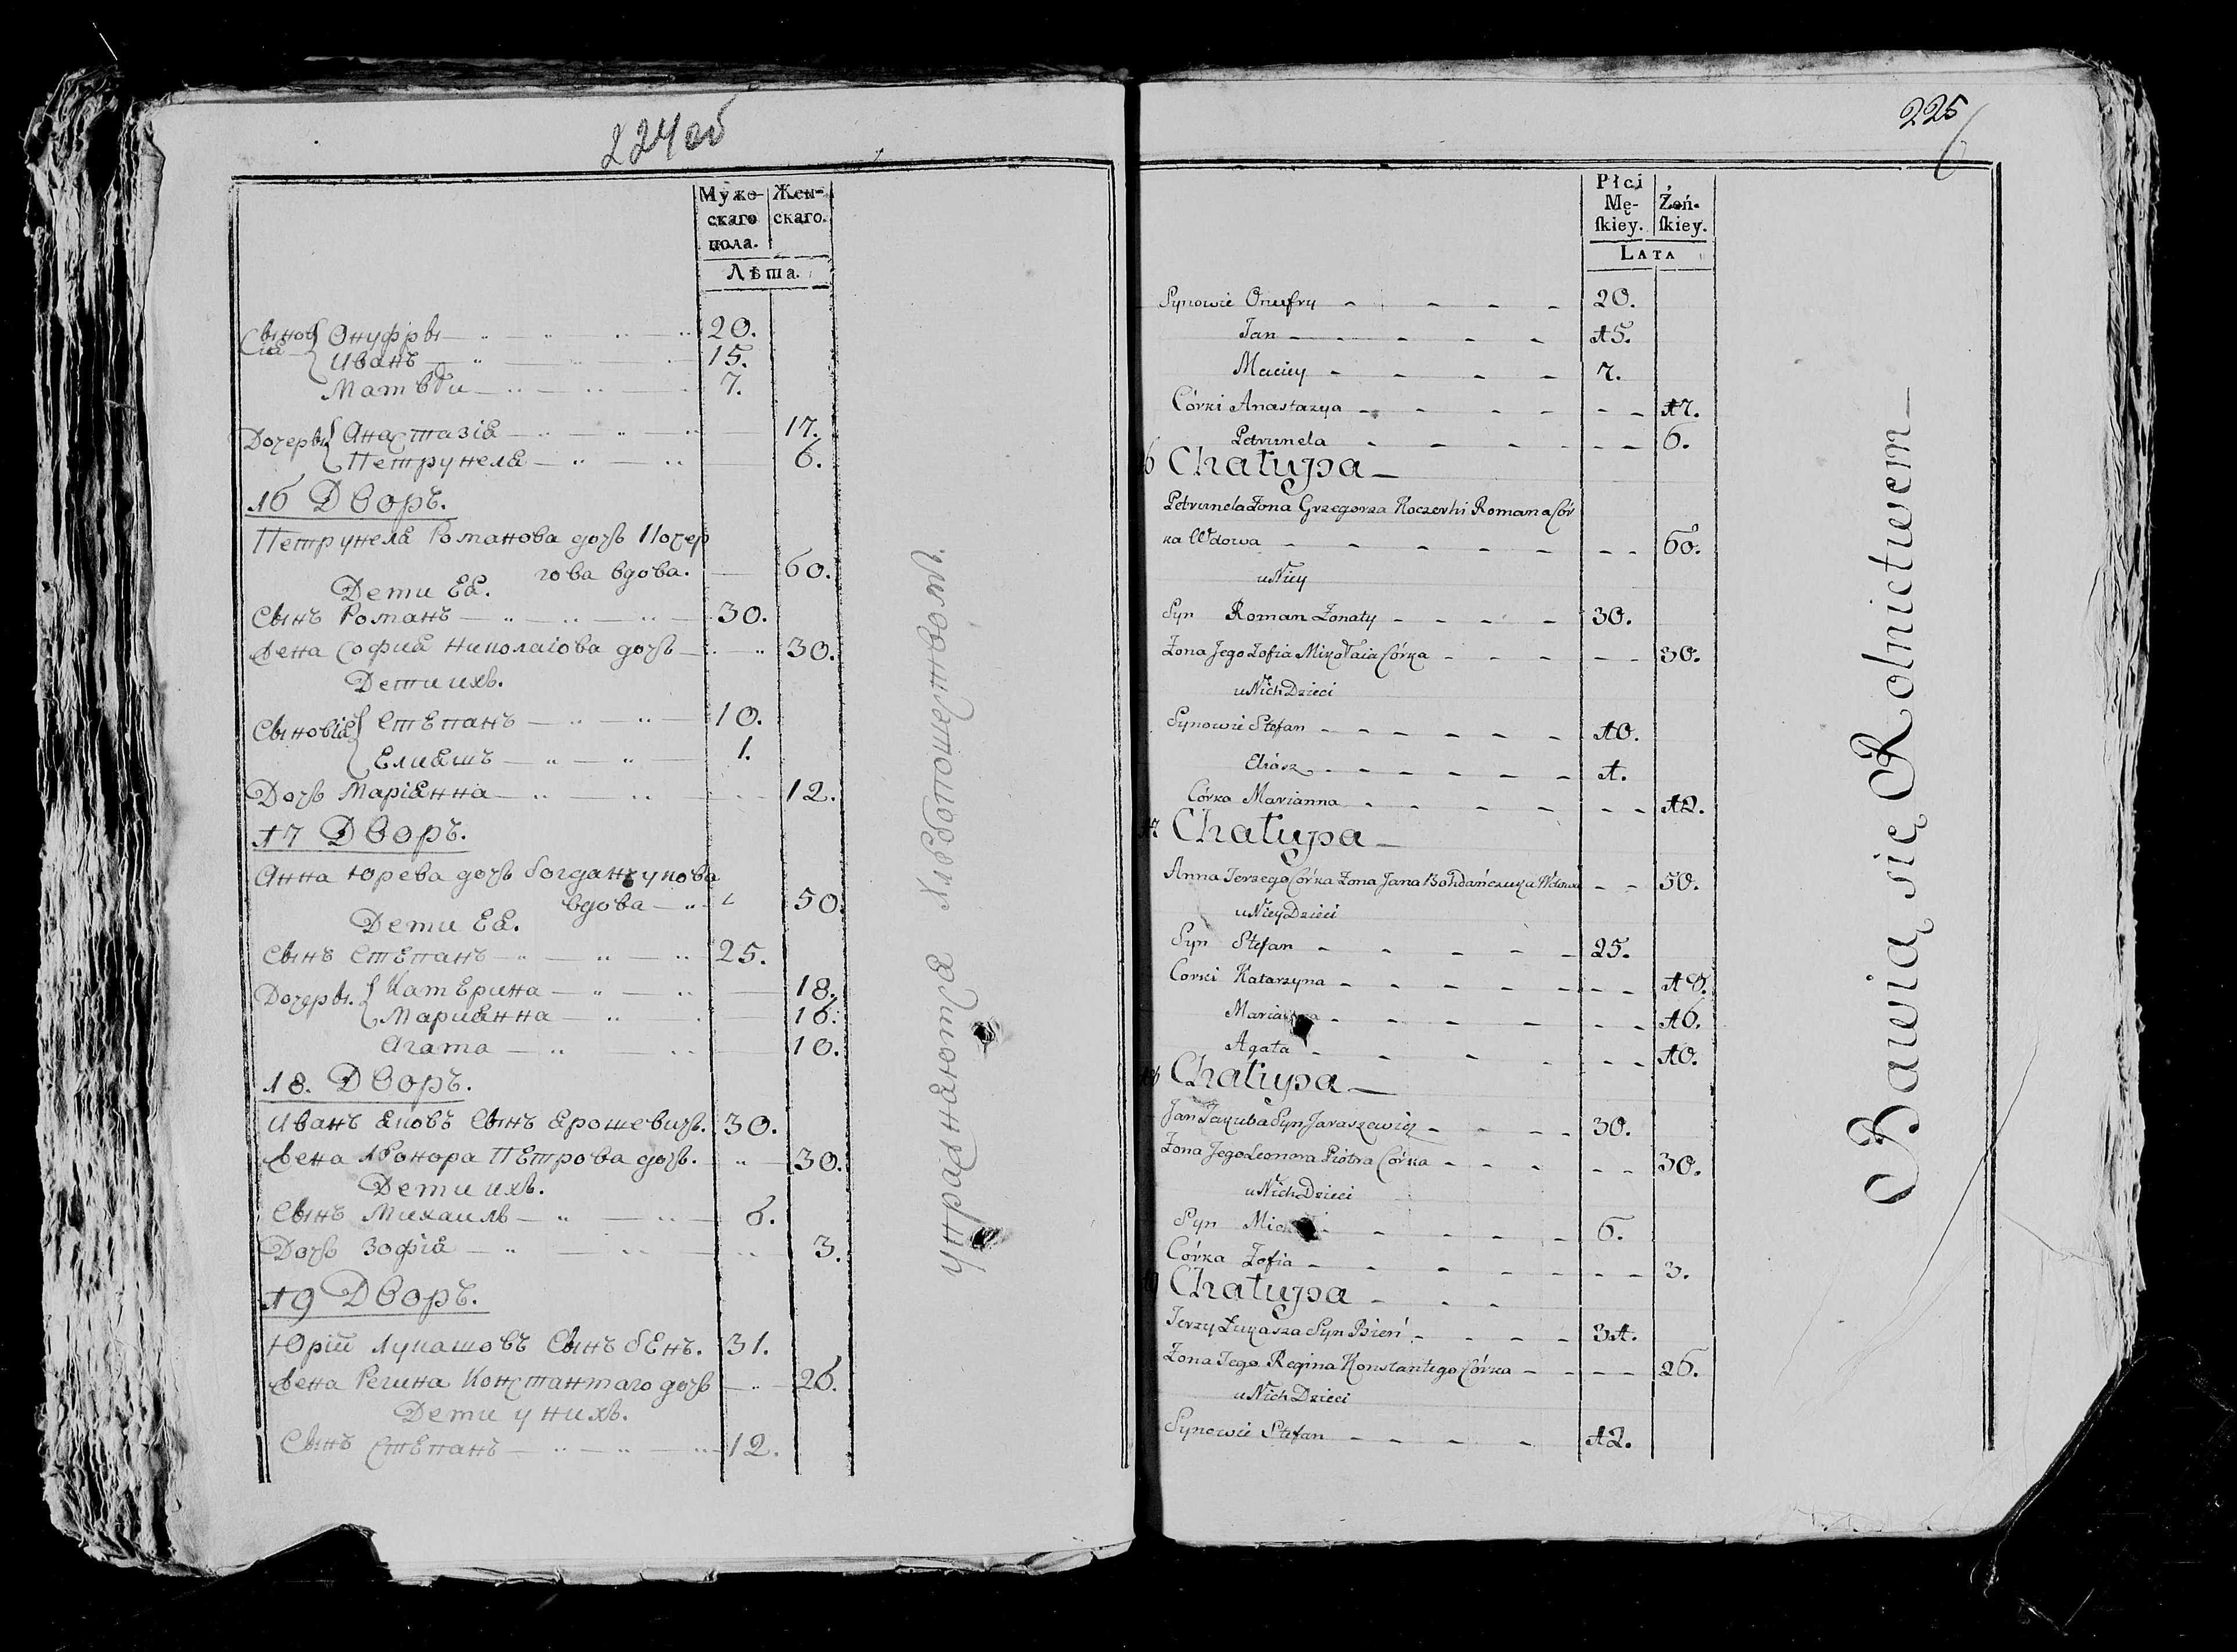 224 об
Муже- Жен-
скаго скаго.
пола.
Лѣта.
Сынов Онуфры 20.
Иванъ 15.
Матвѣи 7.
Дочеры Анастазія 17.
Петрунеля 6.
16 Дворъ.
Петрунеля Романова дочь Кочер
гова вдова. 60.
Дети Ея.
Сынъ Романъ 30.
Жена София Николаіова дочь 30.
Дети ихъ.
Сыновія Степанъ 10.
Елияшъ 1.
Дочь Маріянна 12.
17 Дворъ.
Анна Юрева дочь Богданчукова
вдова 50.
Дети Ея.
Сынъ Степанъ 25.
Дочеры. Катерина 18.
Мариянна 16.
Агата 10.
18. Дворъ.
Иванъ Яковъ Сынъ Ярошевичь. 30.
Жена Леонора Петрова дочь. 30.
Дети ихъ.
Сынъ Михаиль 6.
Дочь Зофія 3.
19 Дворъ.
Юрій Лукашовъ Сынъ Бень. 31.
Жена Регина Константаго дочь 26.
Дети у нихъ.
Сынъ Степанъ 12.
упражняются Хлѣбопашерствомъ.
225
Płci
Mę- Żeń-
ſkiey. ſkiey.
LATA
Synowie Onufry 20.
Jan 15.
Maciey 7.
Córki Anastazya 17.
Petrunela 6.
6 Chałupa
Petrunela Żona Grzegorza Koczerhi Romana Cór
ka Wdowa 60.
u Niey
Syn Roman Żonaty 30.
Żona Jego Zofia Mikołaia Córka 30.
u Nich Dzieci
Synowie Stefan 10.
Eliasz 1.
Córka Marianna 12.
17 Chałupa
Anna Jerzego Córka Żona Jana Bohdańczuka Wdowa 50.
u Niey Dzieci
Syn Stefan 25.
Corki Katarzyna 18.
Marianna 16.
Agata 10.
18 Chałupa
Jan Jakuba Syn Jaraszewicz 30.
Żona Jego Leonora Piotra Córka 30.
u Nich Dzieci
Syn 6.
Córka Zofia 3.
19 Chałupa
Jerzy Łukasza Syn Bień 31.
Żona Jego Regina Konstantego Córka 26.
u Nich Dzieci
Synowie Stefan 12.
Bawią się Rolnictwem